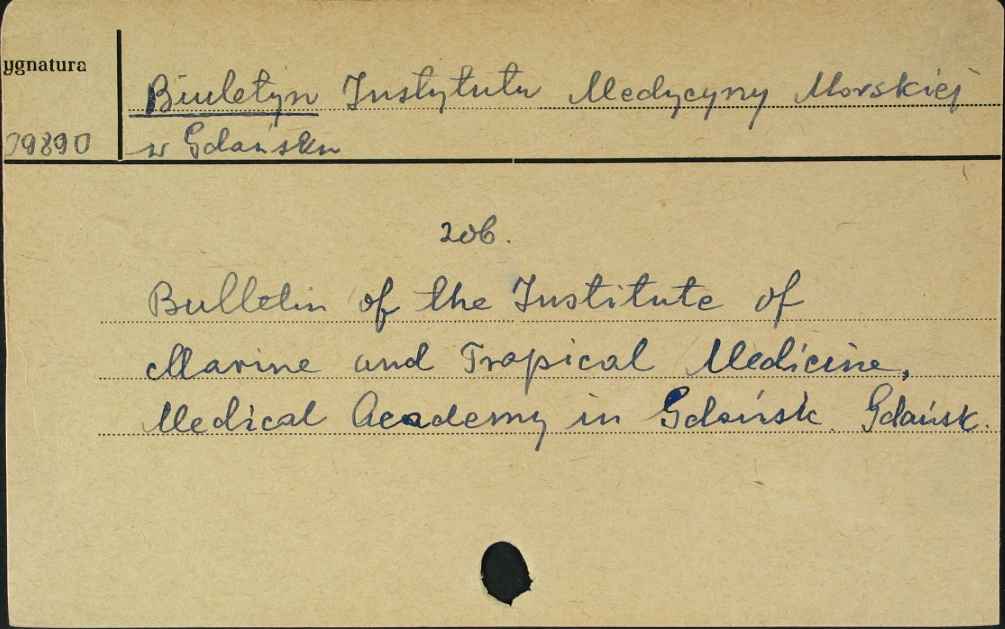 ygnatura
Biuletyn Instytutu Medycyny Morskiej
09890
w Gdańsku
zob.
Bulletin of the Institute of
Marine and Tropical Medicine,
Medical Academy in Gdańsk. Gdańsk.